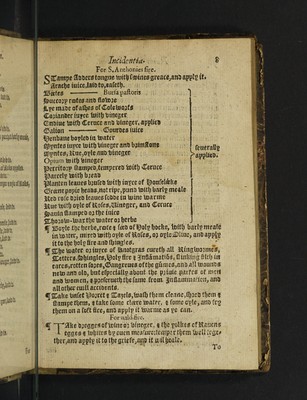 Incidentia. 8
For S. Anthonies fire.
STampe Adders tongue with swines greace, and apply it.
Arache iuice, laid to, easeth.
Beetes Bursa pastoris
Succory rotes and flowrs
Lye made of ashes of Coleworts
Coriander iuyce with vineger
Endiue with Ceruce and vineger, applied
Galbon Gourdes iuice
Henbane boyled in water
Myntes iuyce with vineger and brimstone
Myntes, Rue, oyle and vineger
Opium with vineger
Peritory stamped, tempered with Ceruce
Parcely with bread
Planten leaues brused with iuyce of Houseleke
Greane popie heads, not ripe, with barly meale
Red rose dried leaues sodde in wine warme
Rue with oyle of Roses, Vineger, and Ceruce
Sauin stamped or the iuice
water or herbe
seuerally applied.
¶ Boyle the herbe, rote and seed of Holy hocke, with barly meale
in water, mixed with oyle of Roses, or oyle Oliue, and apply
it to the holy fire and shingles.
¶ The water or iuyce of cureth all Ringwormes,
Tetters, Shingles, Holy fire, stinking filth in
eares, rotten sores, Gangreues of the gummes, and all wounds
new and old, but especially about the priuie partes of men
and women, preserueth the same from Inflammation, and
all other euill accidents.
¶ Take vnset Leekes Tayls, wash them cleane, shred them
stampe them, take some clare water, some oyle, and fry
them on a soft fire, and apply it warme as ye can.
For wild-fire.
¶ TAke dregges of wine or vineger, the yolkes of Rauens
egges whites by euen measure: temper them well toge-
ther, and apply it to the griefe, and it will heale.
To